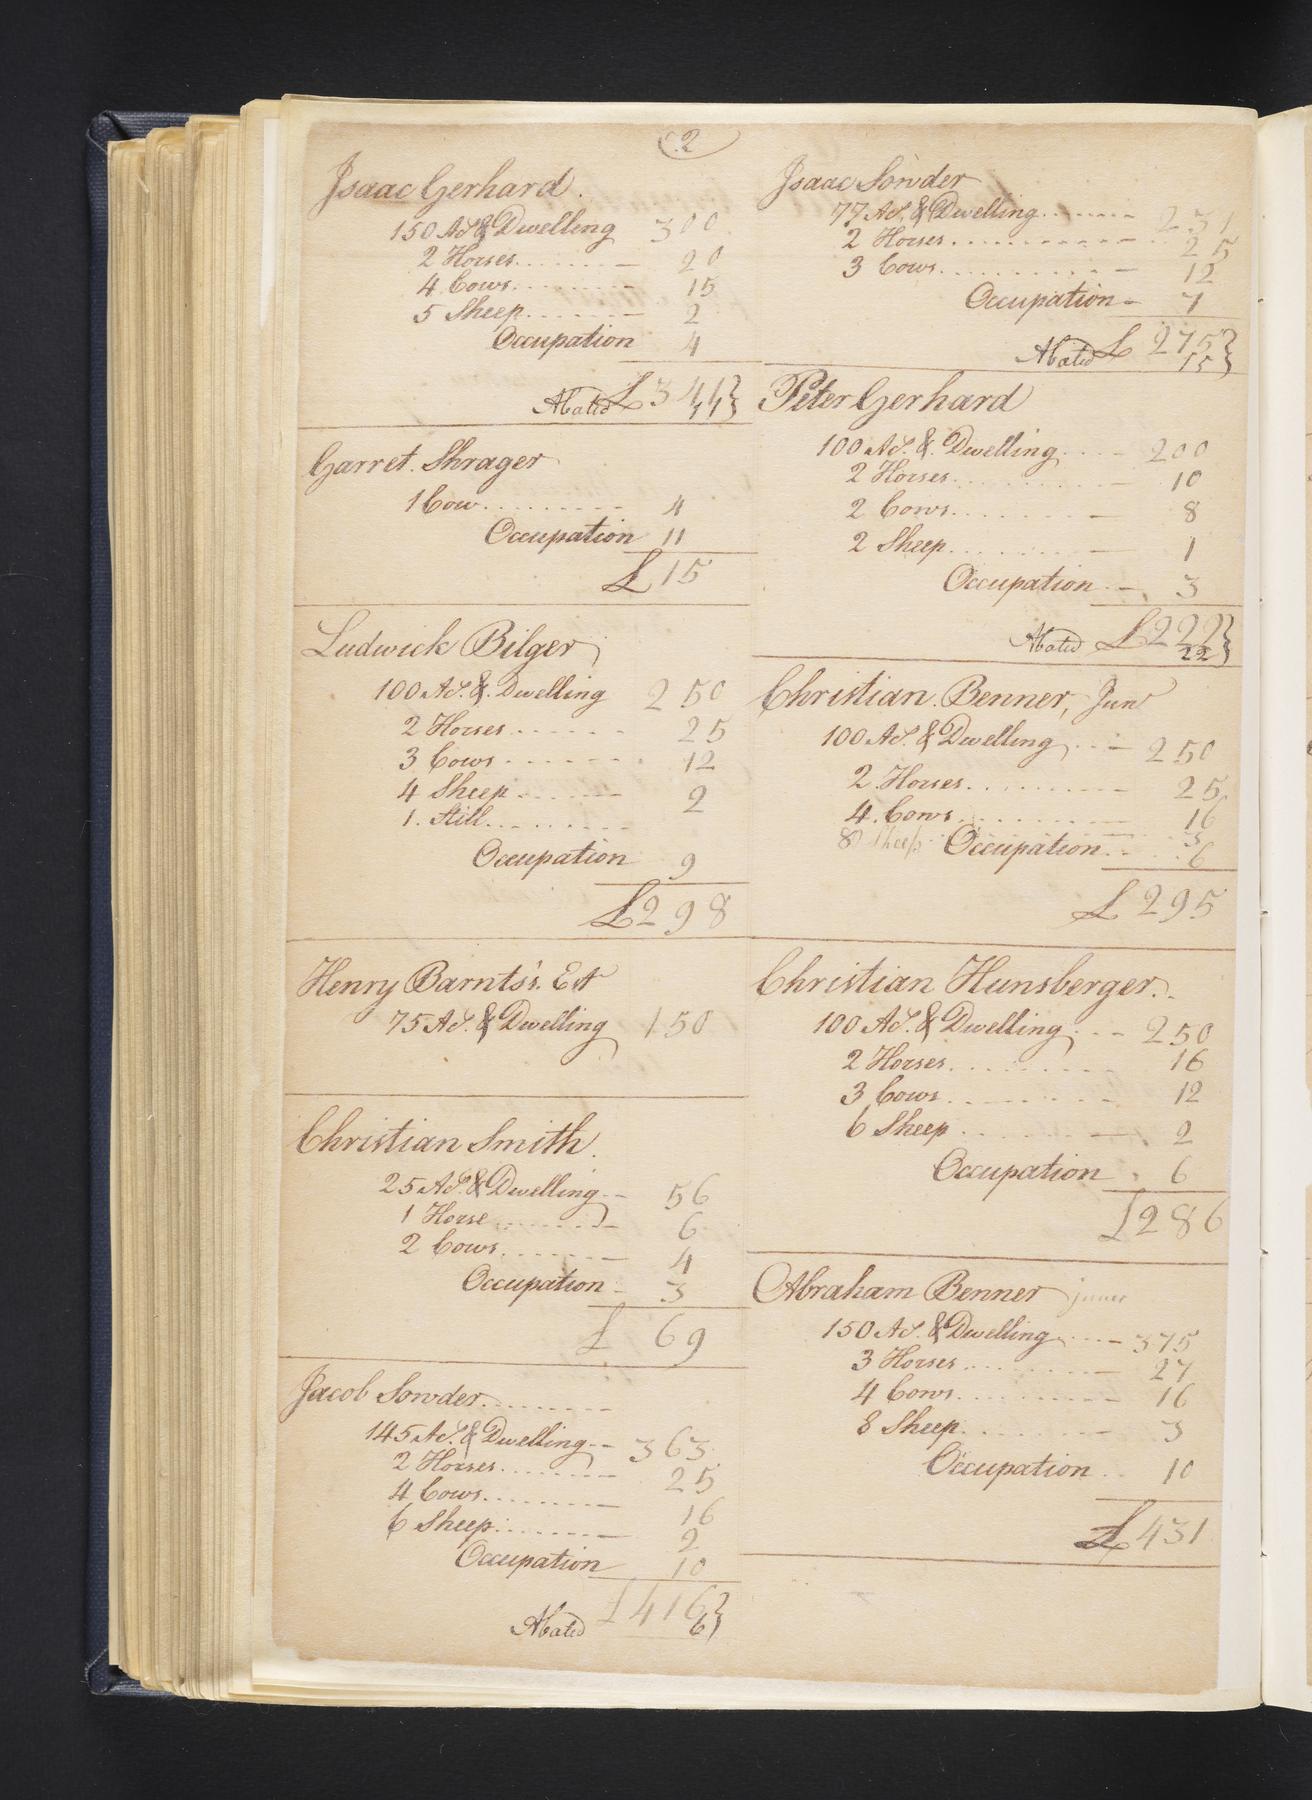 2
Isaac Gerhard.
150 As. & Dwelling 300
2 Horses 20
4 Cows 15
5 Sheep 2
Occupation 4
£ 341
Abated 41
Garret. Shrager
1 Cow 4
Occupation 11
£ 15
Ludwick Bilger
100 As. &. Dwelling 250
2 Horses 25
3 Cows 12
4 Sheep 2
1. Still
Occupation 9
£298
Henry Barnts's. Est
75 As. & Dwelling 150
Christian Smith.
25 As. & Dwelling 56
1 Horse 6
2 Cows 4
Occupation 3
£ 69
Jacob Sowder
145 As. & Dwelling 363
2 Horses 25
4 Cows 16
6 Sheep 2
Occupation 10
£ 416
Abated 6
Isaac Sowder
77 As. & Dwelling 231
2 Horses 25
3 Cows 12
Occupation 7
£ 275
Abated 15
Peter Gerhard
100 As. &. Dwelling 200
2 Horses 10
2 Cows 8
2 Sheep 1
Occupation 3
£222
Abated 22
Christian. Benner, Junr
100 As. & Dwelling 250
2 Horses 25
4. Cows 16
8 Sheep 3
Occupation 6
£ 295
Christian Hunsberger.
100 As. & Dwelling 250
2 Horses 16
3 Cows 12
6 Sheep 2
Occupation 6
£286
Abraham Benner junr
150 As. & Dwelling 375
3 Horses 27
4 Cows 16
8 Sheep 3
Occupation 10
£ 431